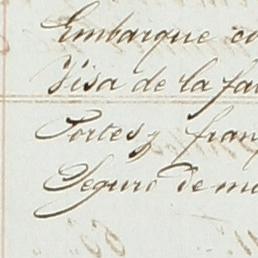 Embarque co
Visa de la fa
Portes y fran
Seguro de ma